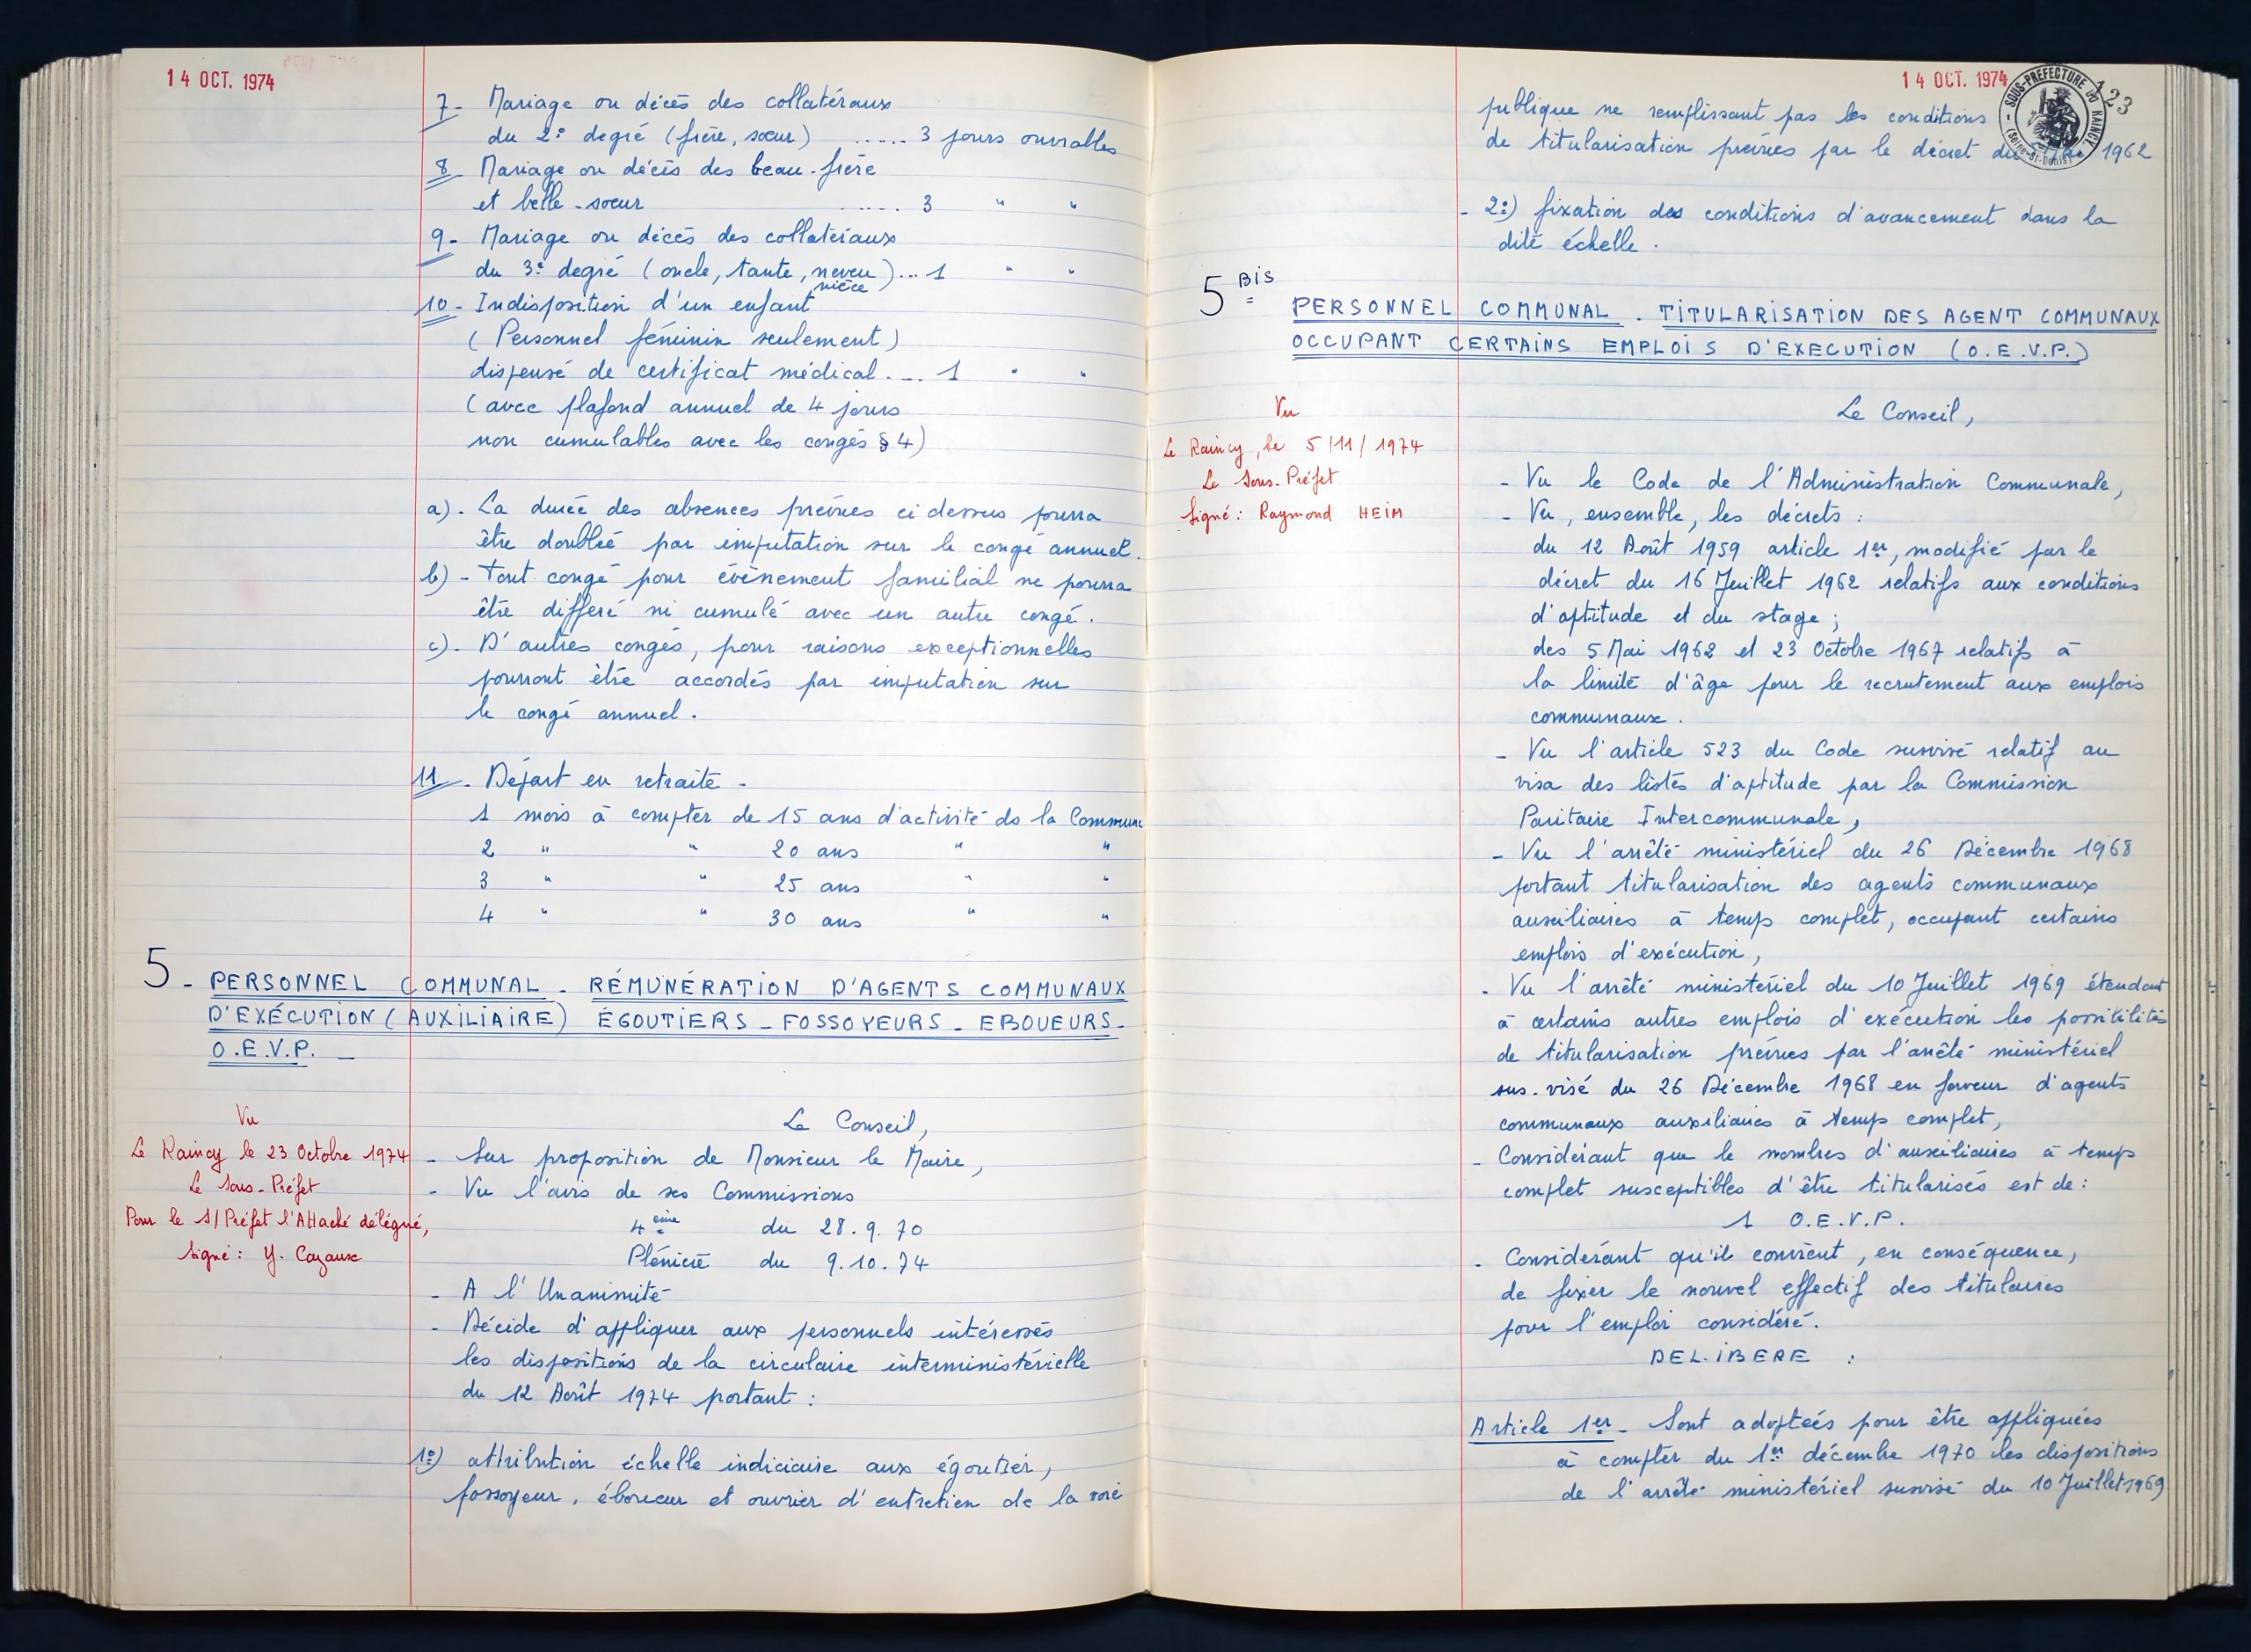 14 OCT. 1974
7- Mariage ou décès des collatéraux
du 2e degré (frère, sœur) ..... 3 jours ouvrables
8- Mariage ou décès des beau-frère
et belle-sœur ..... 3 " "
9- Mariage ou décès des collatéraux
du 3e degré (oncle, tante, neveu)... 1 " "
nièce
10- Indisposition d'un enfant
(Personnel féminin seulement)
dispensé de certificat médical.... 1 " "
(avec plafond annuel de 4 jours
non cumulables avec les congés § 4)
a). La durée des absences prévues ci dessus pourra
être doublée par imputation sur le congé annuel.
b) - Tout congé pour évènement familial ne pourra
être différé ni cumulé avec un autre congé.
c). D'autres congés, pour raisons exceptionnelles
pourront être accordés par imputation sur
le congé annuel.
11- Départ en retraite -
1 mois à compter de 15 ans d'activité ds la Commune
2 " " 20 ans " "
3 " " 25 ans " "
4 " " 30 ans " "
5 - PERSONNEL COMMUNAL - RÉMUNÉRATION D'AGENTS COMMUNAUX
D'EXÉCUTION (AUXILIAIRE) ÉGOUTIERS - FOSSOYEURS - EBOUEURS -
O.E.V.P. -
Vu
Le Raincy le 23 Octobre 1974
Le Sous-Préfet
Pour le S/Préfet l'Attaché délégué,
Signé : Y. Cazaux
Le Conseil,
- Sur proposition de Monsieur le Maire,
- Vu l'avis de ses Commissions
4ème du 28.9.70
Plénière du 9.10.74
- A l'Unanimité
- Décide d'appliquer aux personnels intéressés
les dispositions de la circulaire interministérielle
du 12 Août 1974 portant :
1°) attribution échelle indiciaire aux égoutier,
fossoyeur, éboueur et ouvrier d'entretien de la voie
14 OCT. 1974
123
SOUS-PREFECTURE DU RAINCY
(Seine-St-Denis)
publique ne remplissant pas les conditions
de titularisation prévues par le décret du 5 Mai 1962
- 2°) fixation des conditions d'avancement dans la
dite échelle.
5 BIS
PERSONNEL COMMUNAL - TITULARISATION DES AGENT COMMUNAUX
OCCUPANT CERTAINS EMPLOIS D'EXECUTION (O.E.V.P.)
Vu
Le Raincy, le 5/11/1974
Le Sous-Préfet
Signé : Raymond HEIM
Le Conseil,
- Vu le Code de l'Administration Communale,
- Vu, ensemble, les décrets :
du 12 Août 1959 article 1er, modifié par le
décret du 16 Juillet 1962 relatifs aux conditions
d'aptitude et du stage ;
des 5 Mai 1962 et 23 Octobre 1967 relatifs à
la limite d'âge pour le recrutement aux emplois
communaux.
- Vu l'article 523 du Code susvisé relatif au
visa des listes d'aptitude par la Commission
Paritaire Intercommunale,
- Vu l'arrêté ministériel du 26 Décembre 1968
portant titularisation des agents communaux
auxiliaires à temps complet, occupant certains
emplois d'exécution,
- Vu l'arrêté ministériel du 10 Juillet 1969 étendant
à certains autres emplois d'exécution les possibilités
de titularisation prévues par l'arrêté ministériel
sus-visé du 26 Décembre 1968 en faveur d'agents
communaux auxiliaires à temps complet,
- Considérant que le nombres d'auxiliaires à temps
complet susceptibles d'être titularisés est de :
1 O.E.V.P.
- Considérant qu'il convient, en conséquence,
de fixer le nouvel effectif des titulaires
pour l'emploi considéré.
DELIBERE :
Article 1er - Sont adoptées pour être appliquées
à compter du 1er décembre 1970 les dispositions
de l'arrêté ministériel susvisé du 10 Juillet 1969